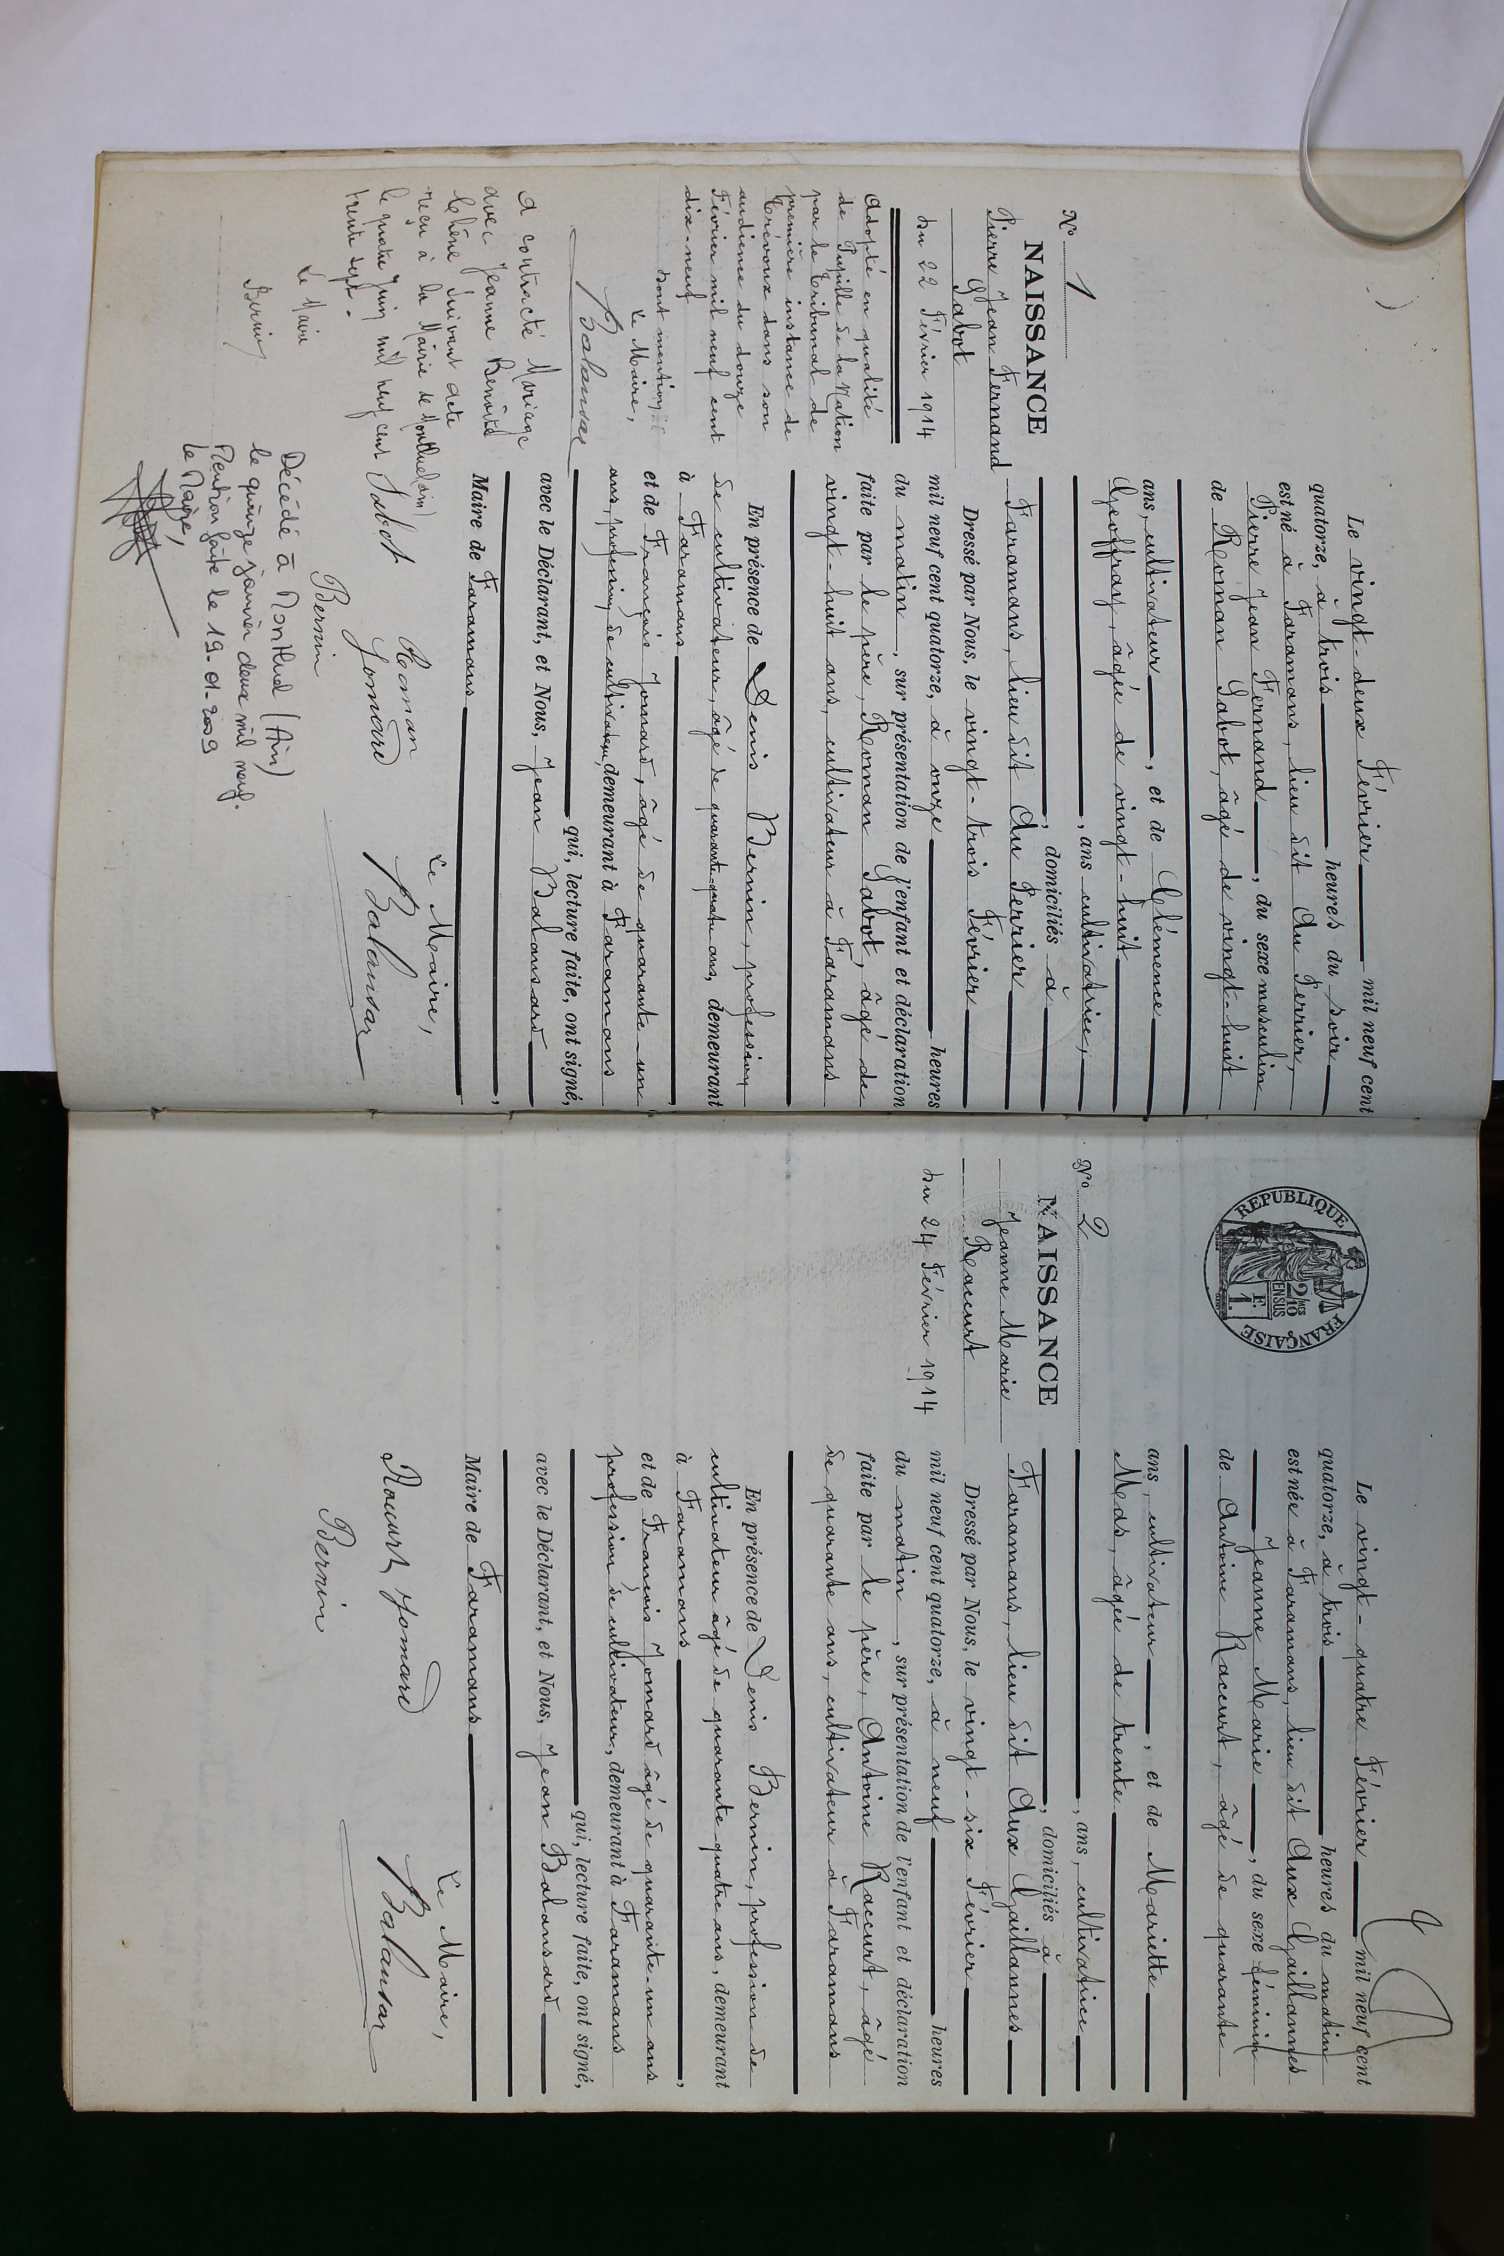 N° 1
NAISSANCE
Pierre Jean Fernand
Gabot
du 22 Février 1914
Adopté en qualité
de Pupille de la Nation
par le Tribunal de
première instance de
Trévoux dans son
audience du douze
Février mil neuf cent
dix-neuf
dont mention
Le Maire,
Balansar
A contracté Mariage
avec Jeanne Benoîte
Chêne suivant acte
reçu à la Mairie de Montluel (Ain)
le quatre Juin mil neuf cent
trente sept.
Le Maire
Bernin
Le vingt-deux Février mil neuf cent
quatorze, à trois heures du soir
est né à Faramans, lieu dit Au Perrier,
Pierre Jean Fernand, du sexe masculin
de Roman Gabot, âgé de vingt-huit
ans, cultivateur, et de Clémence
Geoffray, âgée de vingt-huit
, ans cultivatrice,
, domiciliés à
Faramans, lieu dit Au Perrier
Dressé par Nous, le vingt-trois Février
mil neuf cent quatorze, à onze heures
du matin, sur présentation de l'enfant et déclaration
faite par le père, Roman Gabot, âgé de
vingt-huit ans, cultivateur à Faramans
En présence de Denis Bernin, profession
de cultivateur, âgé de quarante-quatre ans, demeurant
à Faramans,
et de François Jomard, âgé de quarante-un
ans, profession de cultivateur, demeurant à Faramans
qui, lecture faite, ont signé,
avec le Déclarant, et Nous, Jean Balansard
,
Maire de Faramans
Le Maire,
Gabot Roman
Jomard
Balansar
Bernin
Décédé à Montluel (Ain)
le quinze janvier deux mil neuf.
Mention faite le 19-01-2009
Le Maire,
REPUBLIQUE FRANÇAISE
2/10 EN SUS
1 F.
N° 2
NAISSANCE
Jeanne Marie
Raccurt
du 24 Février 1914
2
Le vingt-quatre Février mil neuf cent
quatorze, à trois heures du matin
est née à Faramans, lieu dit Aux Gaillannes
Jeanne Marie, du sexe féminin
de Antoine Raccurt, âgé de quarante
ans, cultivateur, et de Mariette
Mas, âgée de trente
, ans, cultivatrice
, domiciliés à
Faramans, lieu dit Aux Gaillannes
Dressé par Nous, le vingt-six Février
mil neuf cent quatorze, à neuf heures
du matin, sur présentation de l'enfant et déclaration
faite par le père, Antoine Raccurt, âgé
de quarante ans, cultivateur à Faramans
En présence de Denis Bernin, profession de
cultivateur âgé de quarante quatre ans, demeurant
à Faramans,
et de François Jomard âgé de quarante-un ans
profession de cultivateur, demeurant à Faramans
qui, lecture faite, ont signé,
avec le Déclarant, et Nous, Jean Balansard
Maire de Faramans
Le Maire,
Raccurt Jomard
Balansar
Bernin